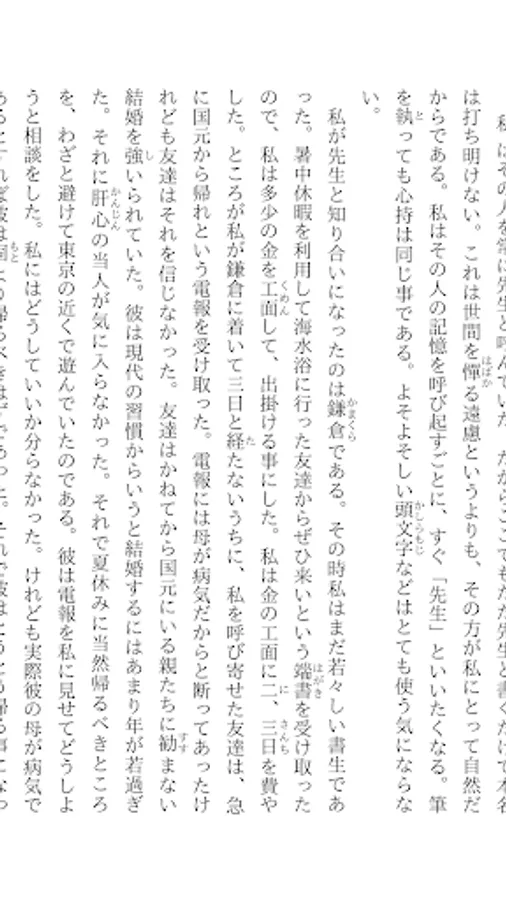 はその人を常に先生と呼んでいた。だからここでもただ先生と書くだけで本名
は打ち明けない。これは世間を憚る遠慮というよりも、その方が私にとって自然だ
からである。私はその人の記憶を呼び起すごとに、すぐ「先生」といいたくなる。筆
を執っても心持は同じ事である。よそよそしい頭文字などはとても使う気にならな
い。
私が先生と知り合いになったのは鎌倉である。その時私はまだ若々しい書生であ
った。暑中休暇を利用して海水浴に行った友達からぜひ来いという端書を受け取った
ので、私は多少の金を工面して、出掛ける事にした。私は金の工面に二、三日を費や
した。ところが私が鎌倉に着いて三日と経たないうちに、私を呼び寄せた友達は、急
に国元から帰れという電報を受け取った。電報には母が病気だからと断ってあったけ
れども友達はそれを信じなかった。友達はかねてから国元にいる親たちに勧まない
結婚を強いられていた。彼は現代の習慣からいうと結婚するにはあまり年が若過ぎ
た。それに肝心の当人が気に入らなかった。それで夏休みに当然帰るべきところ
を、わざと避けて東京の近くで遊んでいたのである。彼は電報を私に見せてどうしよ
うと相談をした。私にはどうしていいか分らなかった。けれども実際彼の母が病気で
あるとすれば彼は固より帰るべきはずであった。それで彼はとうとう帰る事になっ